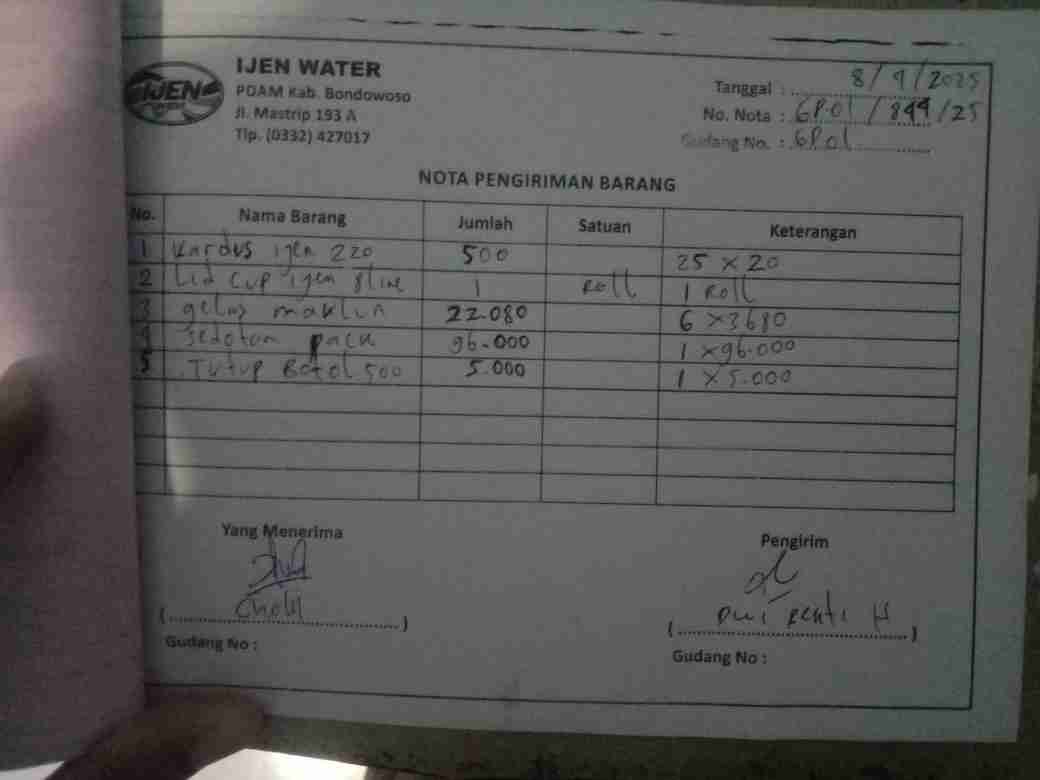 IJEN
IJEN WATER
PDAM Kab. Bondowoso
Jl. Mastrip 193 A
Tlp. (0332) 427017
Tanggal : 8/9/2025
No. Nota : GP01/844/25
Gudang No. : GP01
NOTA PENGIRIMAN BARANG
No. Nama Barang Jumlah Satuan Keterangan
1 Kardus ijen 220 500 25 x 20
2 Lid cup ijen 8line 1 Roll 1 Roll
3 gelas maklin 22.080 6 x 3680
4 Sedotan pack 96.000 1 x 96.000
5 Tutup Botol 500 5.000 1 x 5.000
Yang Menerima Pengirim
( Cholil ) ( Dwi H )
Gudang No : Gudang No :